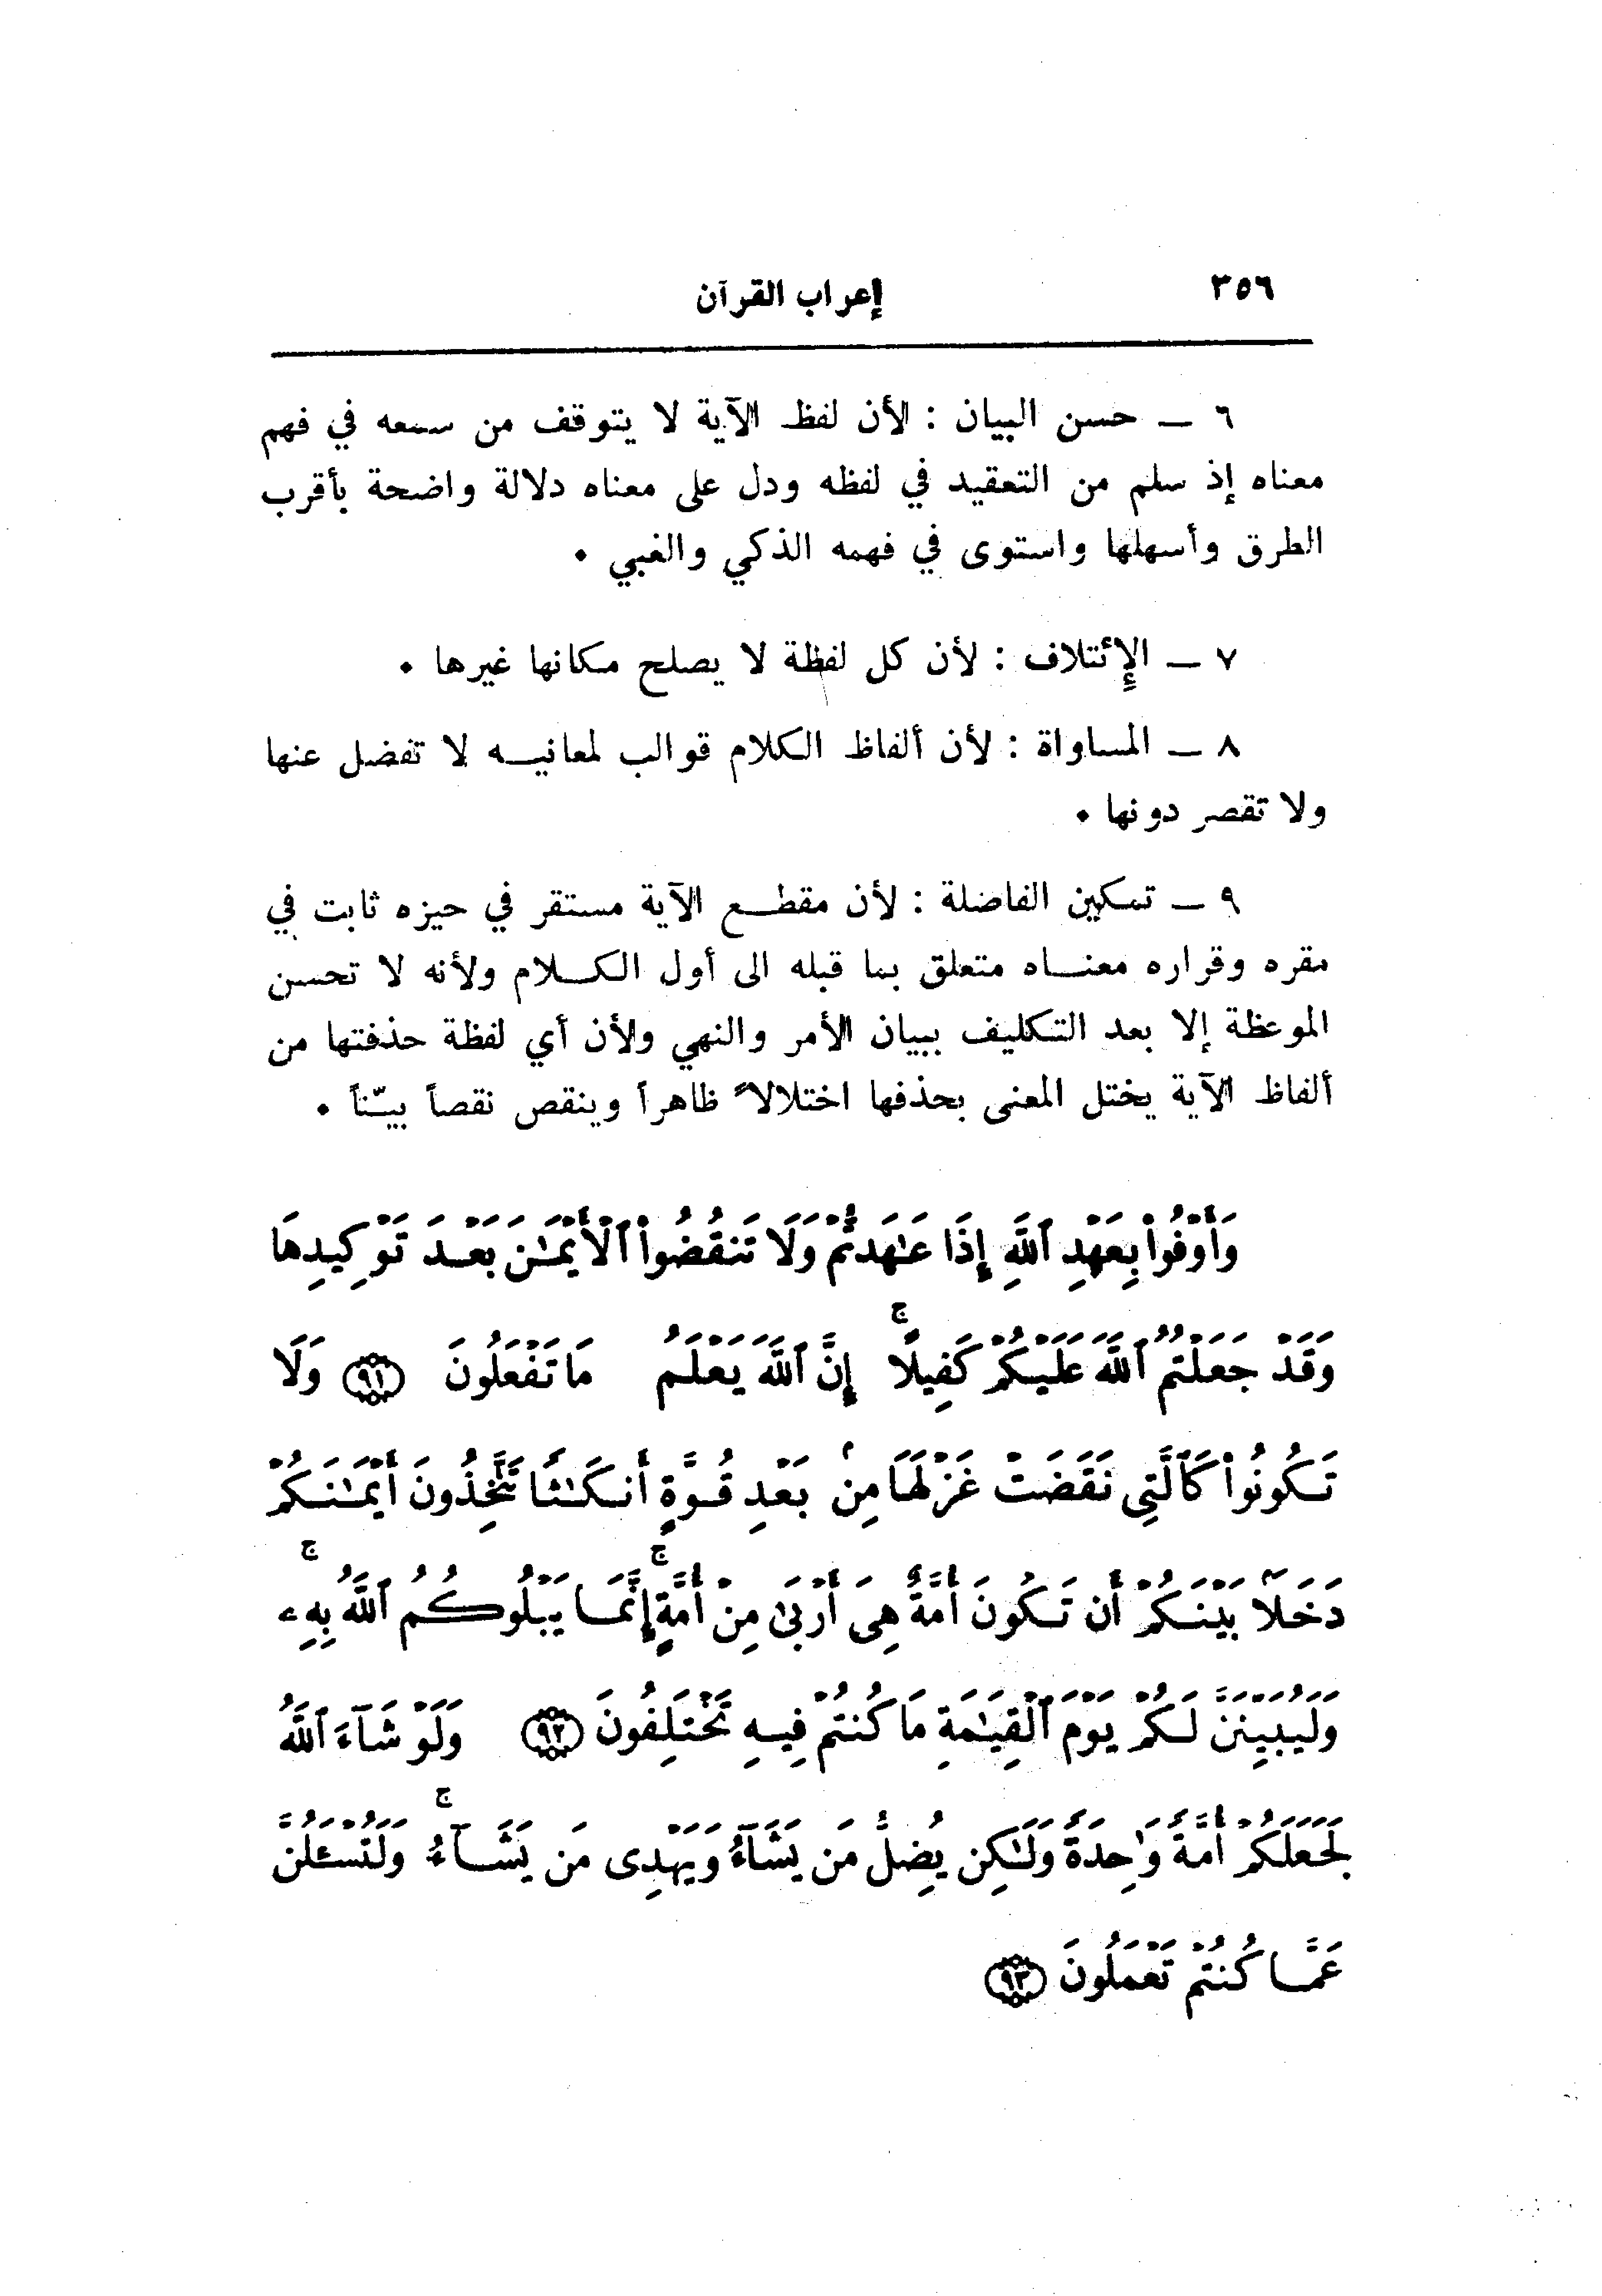 ٣٥٦
إعراب القرآن
٦ ــ حسن البيان : لأن لفظ الآية لا يتوقف من سمعه في فهم
معناه إذ سلم من التعقيد في لفظه ودل على معناه دلالة واضحة بأقرب
الطرق وأسهلها واستوى في فهمه الذكي والغبي .
٧ ــ الإئتلاف : لأن كل لفظة لا يصلح مكانها غيرها .
٨ ــ المساواة : لأن ألفاظ الكلام قوالب لمعانيه لا تفضل عنها
ولا تقصر دونها .
٩ ــ تمكين الفاصلة : لأن مقطع الآية مستقر في حيزه ثابت في
مقره وقراره معناه متعلق بما قبله الى أول الكلام ولأنه لا تحسن
الموعظة إلا بعد التكليف ببيان الأمر والنهي ولأن أي لفظة حذفتها من
ألفاظ الآية يختل المعنى بحذفها اختلالاً ظاهراً وينقص نقصاً بيّناً .
وَأَوْفُواْ بِعَهْدِ ٱللَّهِ إِذَا عَٰهَدتُّمْ وَلَا تَنقُضُواْ ٱلْأَيْمَٰنَ بَعْدَ تَوْكِيدِهَا
وَقَدْ جَعَلْتُمُ ٱللَّهَ عَلَيْكُمْ كَفِيلًا ۚ إِنَّ ٱللَّهَ يَعْلَمُ مَا تَفْعَلُونَ ﴿٩١﴾ وَلَا
تَكُونُواْ كَٱلَّتِى نَقَضَتْ غَزْلَهَا مِنۢ بَعْدِ قُوَّةٍ أَنكَٰثًا تَتَّخِذُونَ أَيْمَٰنَكُمْ
دَخَلَۢا بَيْنَكُمْ أَن تَكُونَ أُمَّةٌ هِىَ أَرْبَىٰ مِنْ أُمَّةٍ ۚ إِنَّمَا يَبْلُوكُمُ ٱللَّهُ بِهِۦ ۚ
وَلَيُبَيِّنَنَّ لَكُمْ يَوْمَ ٱلْقِيَٰمَةِ مَا كُنتُمْ فِيهِ تَخْتَلِفُونَ ﴿٩٢﴾ وَلَوْ شَآءَ ٱللَّهُ
لَجَعَلَكُمْ أُمَّةً وَٰحِدَةً وَلَٰكِن يُضِلُّ مَن يَشَآءُ وَيَهْدِى مَن يَشَآءُ ۚ وَلَتُسْـَٔلُنَّ
عَمَّا كُنتُمْ تَعْمَلُونَ ﴿٩٣﴾